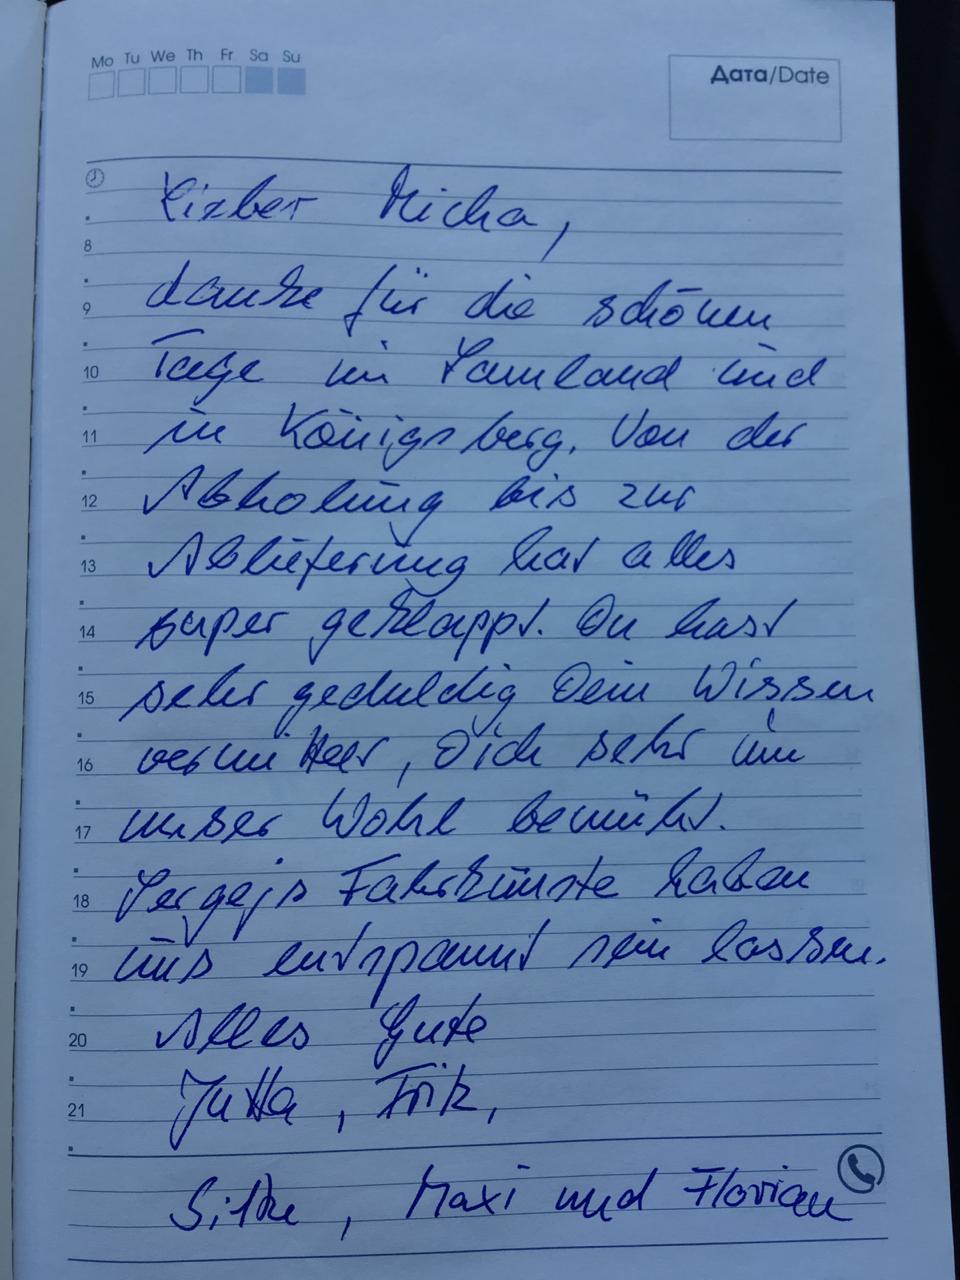 Mo Tu We Th Fr Sa Su
Дата/Date
Lieber Micha,
8
danke für die schönen
9
Tage im Samland und
10
in Königsberg. Von der
11
Abholung bis zur
12
Ablieferung hat alles
13
super geklappt. Du hast
14
sehr geduldig Dein Wissen
15
vermittelt, Dich sehr um
16
unser Wohl bemüht.
17
Sergejs Fahrkünste haben
18
uns entspannt sein lassen.
19
Alles Gute
20
Jutta, Fritz,
21
Silke, Maxi und Florian